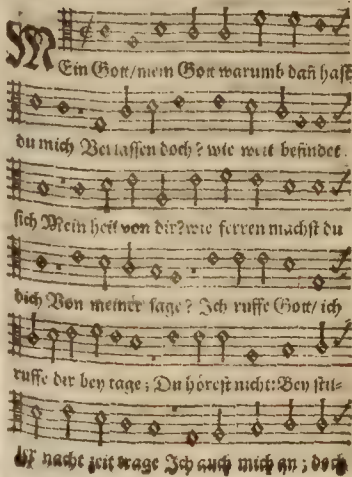 MEin Gott/mein Gott warumb dañ hast
du mich Verlassen doch? wie weit befindet
sich Mein heil von dir? wie ferren machst du
dich Von meiner sage? Ich ruffe Gott/ ich
ruffe dir bey tage; Du hörest nicht: Bey stil-
ler nacht zeit trage Ich auch mich an; doch